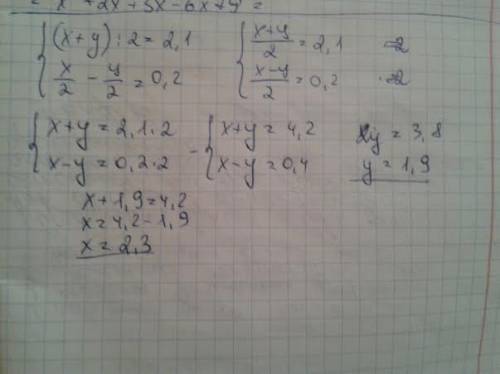 = x + 2x + 5x - 6x + y =
{ (x+y) : 2 = 2,1
x/2 - y/2 = 0,2
{ (x+y)/2 = 2,1 ·2
(x-y)/2 = 0,2 ·2
{ x+y = 2,1·2
x-y = 0,2·2
- { x+y = 4,2
x-y = 0,4
2y = 3,8
y = 1,9
x + 1,9 = 4,2
x = 4,2 - 1,9
x = 2,3